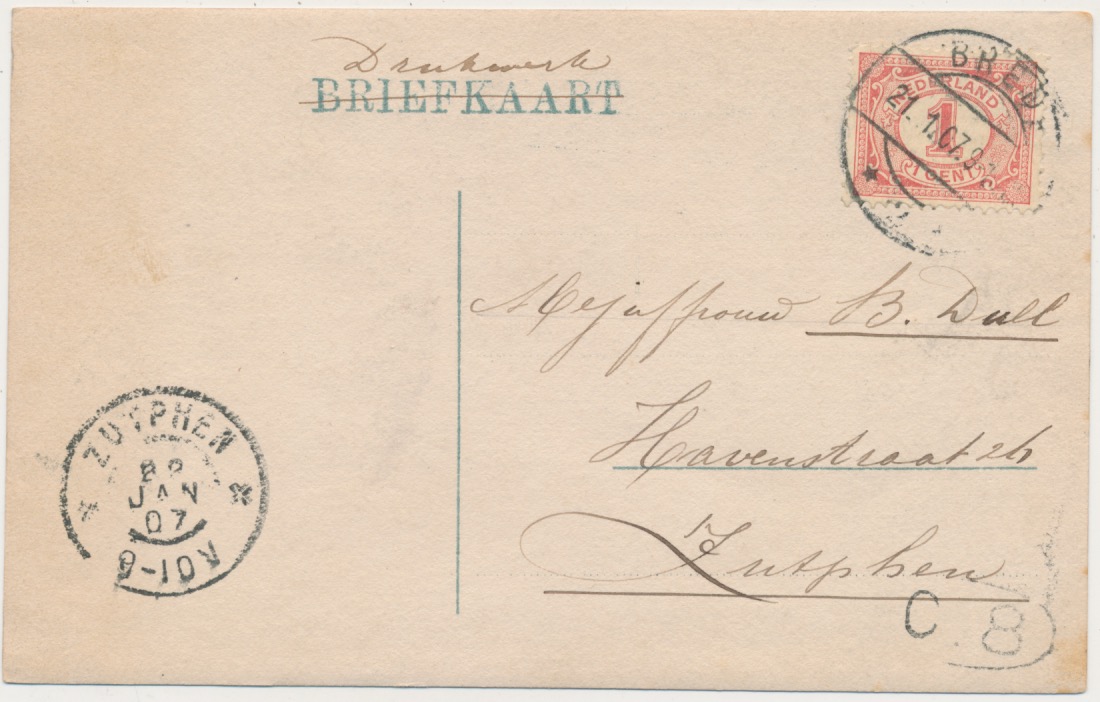 Drukwerk
BRIEFKAART
BREDA
21.1.07.9
2
NEDERLAND
1
1 CENT
Mejuffrouw B. Dull
Havenstraat 26
Zutphen
ZUTPHEN
22
JAN
07
C
8